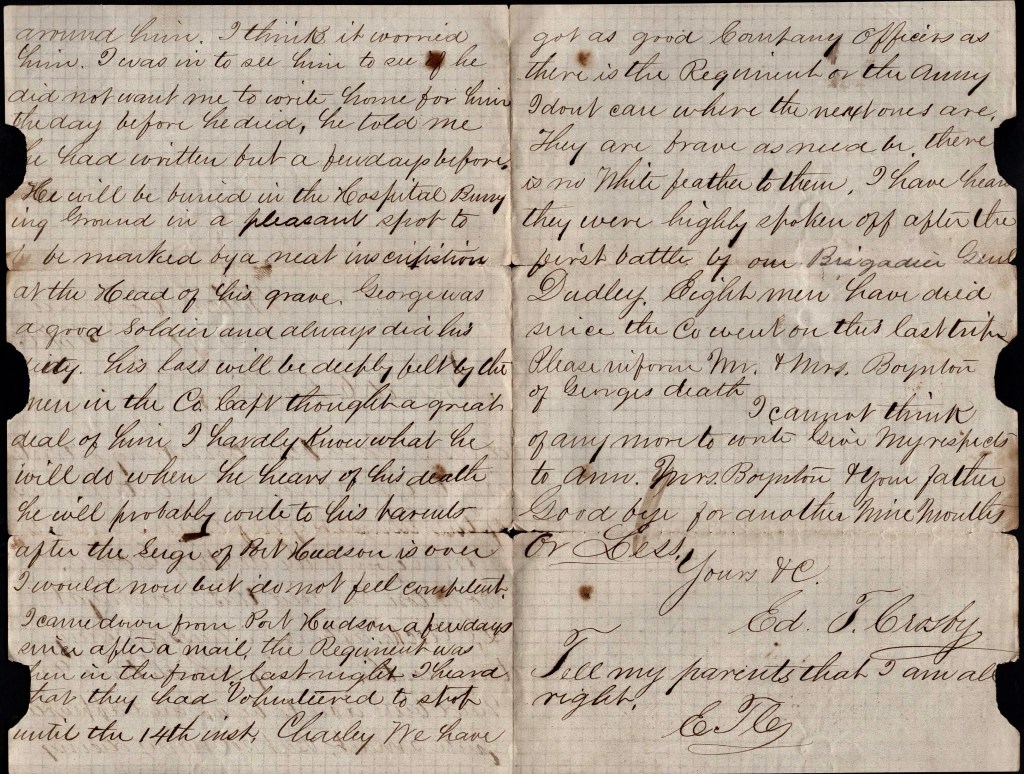 around him. I think it worried
him. I was in to see him to see if he
did not want me to write home for him
the day before he died, he told me
he had written but a few days before.
He will be buried in the Hospital Burry
ing Ground in a pleasant spot to
be marked by a neat inscription
at the Head of his grave. George was
a good Soldier and always did his
duty. his loss will be deeply felt by the
men in the Co. Capt thought a great
deal of him I hardly know what he
will do when he hears of his death
he will probably write to his parents
after the Seige of Port Hudson is over
I would now but do not fell competent.
I came down from Port Hudson a few days
since after a mail, the Regiment was
then in the front, last night I heard
that they had Volunteered to stop
until the 14th inst. Charley We have
got as good Company Officers as
there is the Regiment or the Army
I dont care where the next ones are.
They are brave as need be, there
is no White feather to them, I have hear
they were highly spoken off after the
first battle by our Brigadier Genl
Dudley. Eight men have died
since the Co went on this last trip
Please inform Mr. & Mrs. Boynton
of Georges death
I cannot think
of any more to write Give My respects
to Ann. Mrs. Boynton & your father
Good bye for another Nine Months
Or Less.
Yours &C.
Ed. T. Crosby
Tell my parents that I am all
right.
E T C